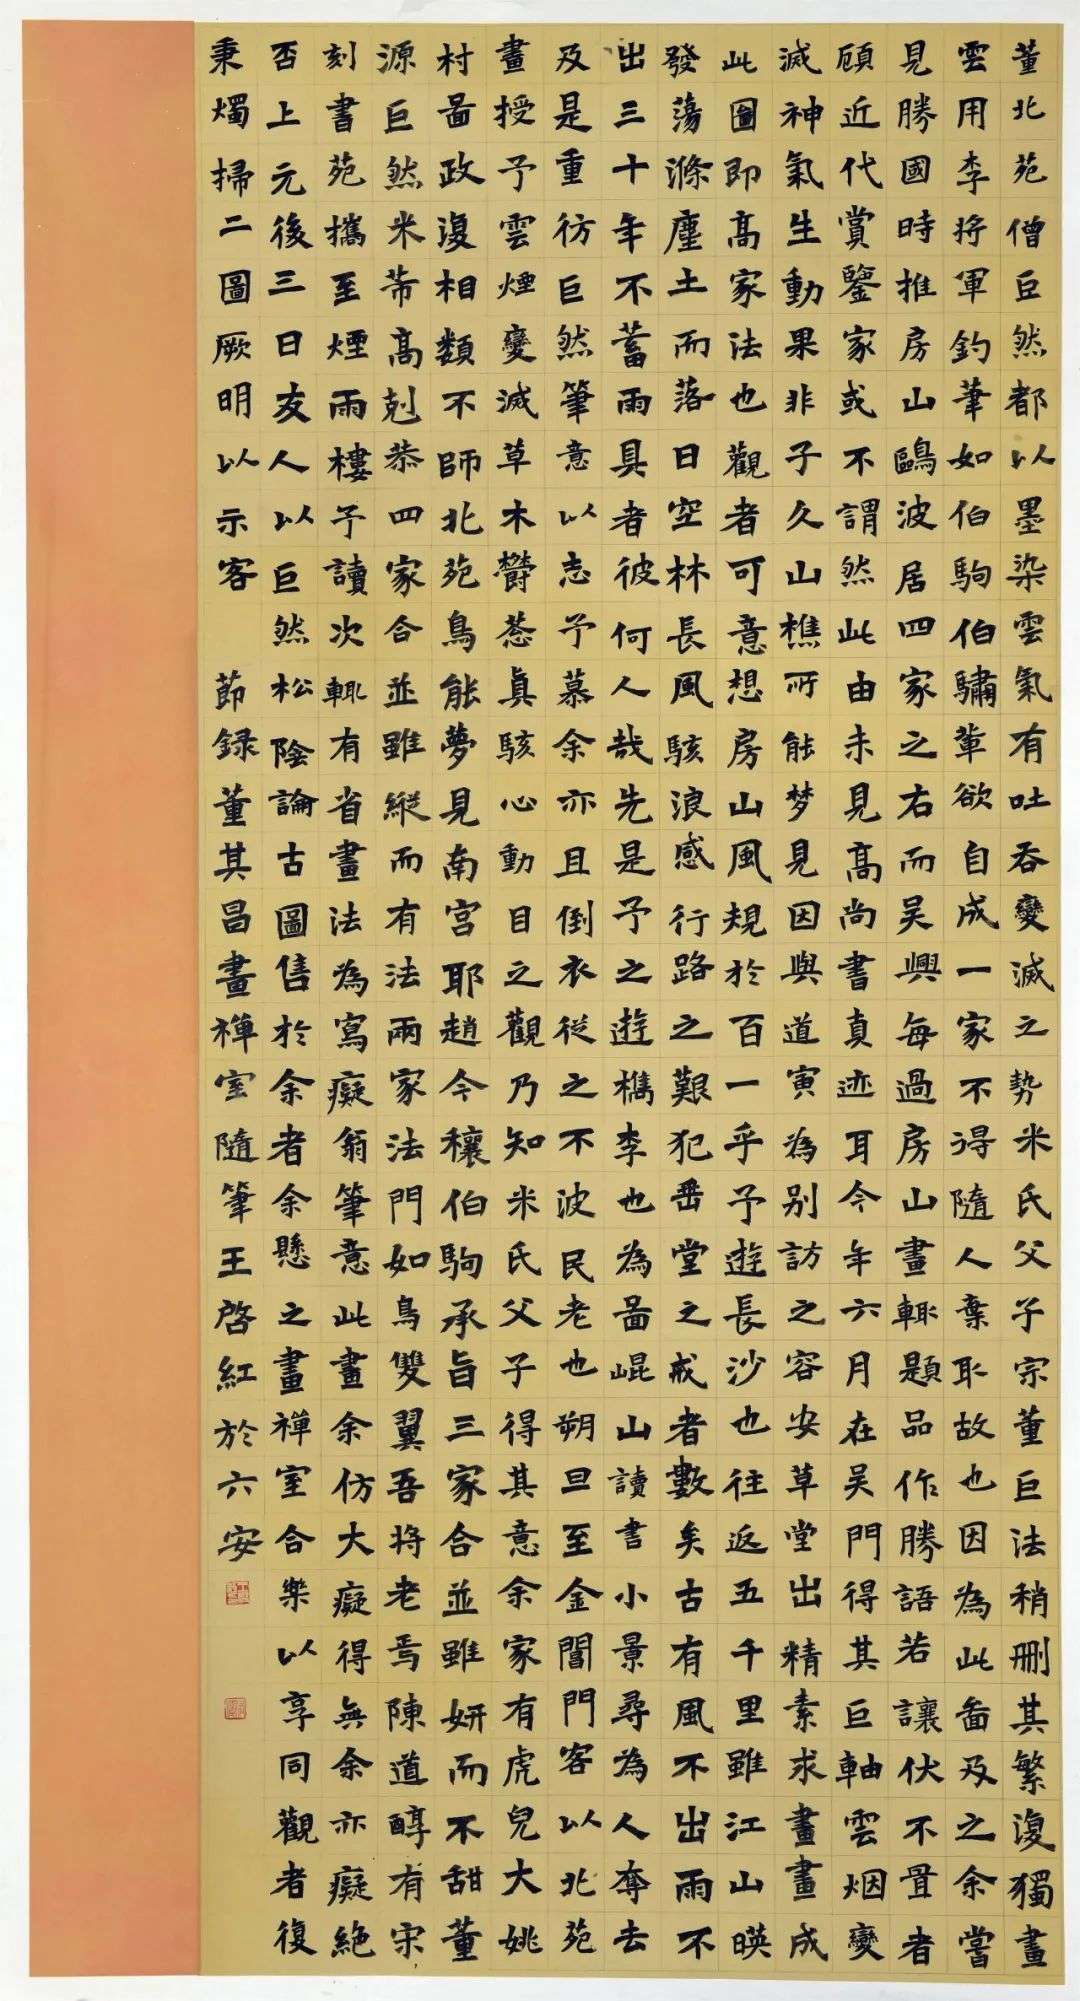 董北苑僧巨然都以墨染雲氣有吐吞變滅之勢米氏父子宗董巨法稍刪其繁復獨畫
雲用李將軍釣筆如伯駒伯驌輩欲自成一家不得隨人棄取故也因為此啚及之余嘗
見勝國時推房山鷗波居四家之右而吳興每過房山畫輒題品作勝語若讓伏不置者
顧近代賞鑒家或不謂然此由未見高尚書真迹耳今年六月在吳門得其巨軸雲烟變
滅神氣生動果非子久山樵所能梦見因與道寅為别訪之容安草堂出精素求畫畫成
此圖即高家法也觀者可意想房山風規於百一乎予遊長沙也往返五千里雖江山暎
發蕩滌塵土而落日空林長風駭浪感行路之艱犯垂堂之戒者數矣古有風不出雨不
出三十年不蓄雨具者彼何人哉先是予之遊檇李也為啚崐山讀書小景尋為人奪去
及是重彷巨然筆意以志予慕余亦且倒衣從之不波民老也朔旦至金閶門客以北苑
畫授予雲煙變滅草木欝葱真駭心動目之觀乃知米氏父子得其意余家有虎兒大姚
村啚政復相類不師北苑鳥能夢見南宮耶趙令穰伯駒承旨三家合並雖妍而不甜董
源巨然米芾高剋恭四家合並雖縱而有法兩家法門如鳥雙翼吾將老焉陳道醇有宋
刻書苑攜至煙雨樓予讀次輒有省畫法為寫癡翁筆意此畫余仿大癡得無余亦癡絕
否上元後三日友人以巨然松陰論古圖售於余者余懸之畫禪室合樂以享同觀者復
秉燭掃二圖厥明以示客 節録董其昌畫禪室隨筆王啓紅於六安